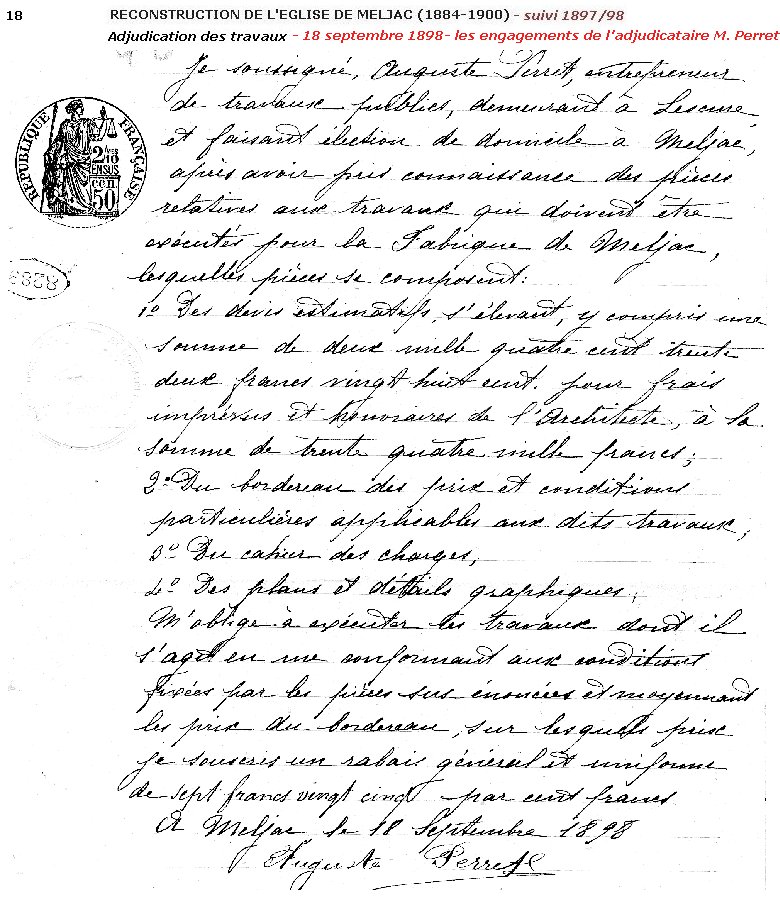 18
RECONSTRUCTION DE L'EGLISE DE MELJAC (1884-1900) - suivi 1897/98
Adjudication des travaux - 18 septembre 1898- les engagements de l'adjudicataire M. Perret
Je soussigné, Auguste Perret, entrepreneur
de travaux publics, demeurant à Lescure
et faisant élection de domicile à Meljac,
après avoir pris connaissance des pièces
relatives aux travaux qui doivent être
exécutés pour la Fabrique de Meljac,
lesquelles pièces se composent:
1º Des devis estimatifs, s'élevant, y compris une
somme de deux mille quatre cent trente
deux francs vingt huit cent. pour frais
imprévus et honoraires de l'Architecte, à la
somme de trente quatre mille francs;
2º Du bordereau des prix et conditions
particulières applicables aux dits travaux;
3º Du cahier des charges,
4º Des plans et détails graphiques,
M'oblige à exécuter les travaux dont il
s'agit en me conformant aux conditions
fixées par les pièces sus énoncées et moyennant
les prix du bordereau, sur lesquels prix
je souscris un rabais général et uniforme
de sept francs vingt cinq par cent francs
A Meljac le 18 Septembre 1898
Auguste Perret
REPUBLIQUE FRANÇAISE
2/10
EN SUS
CEN.
50